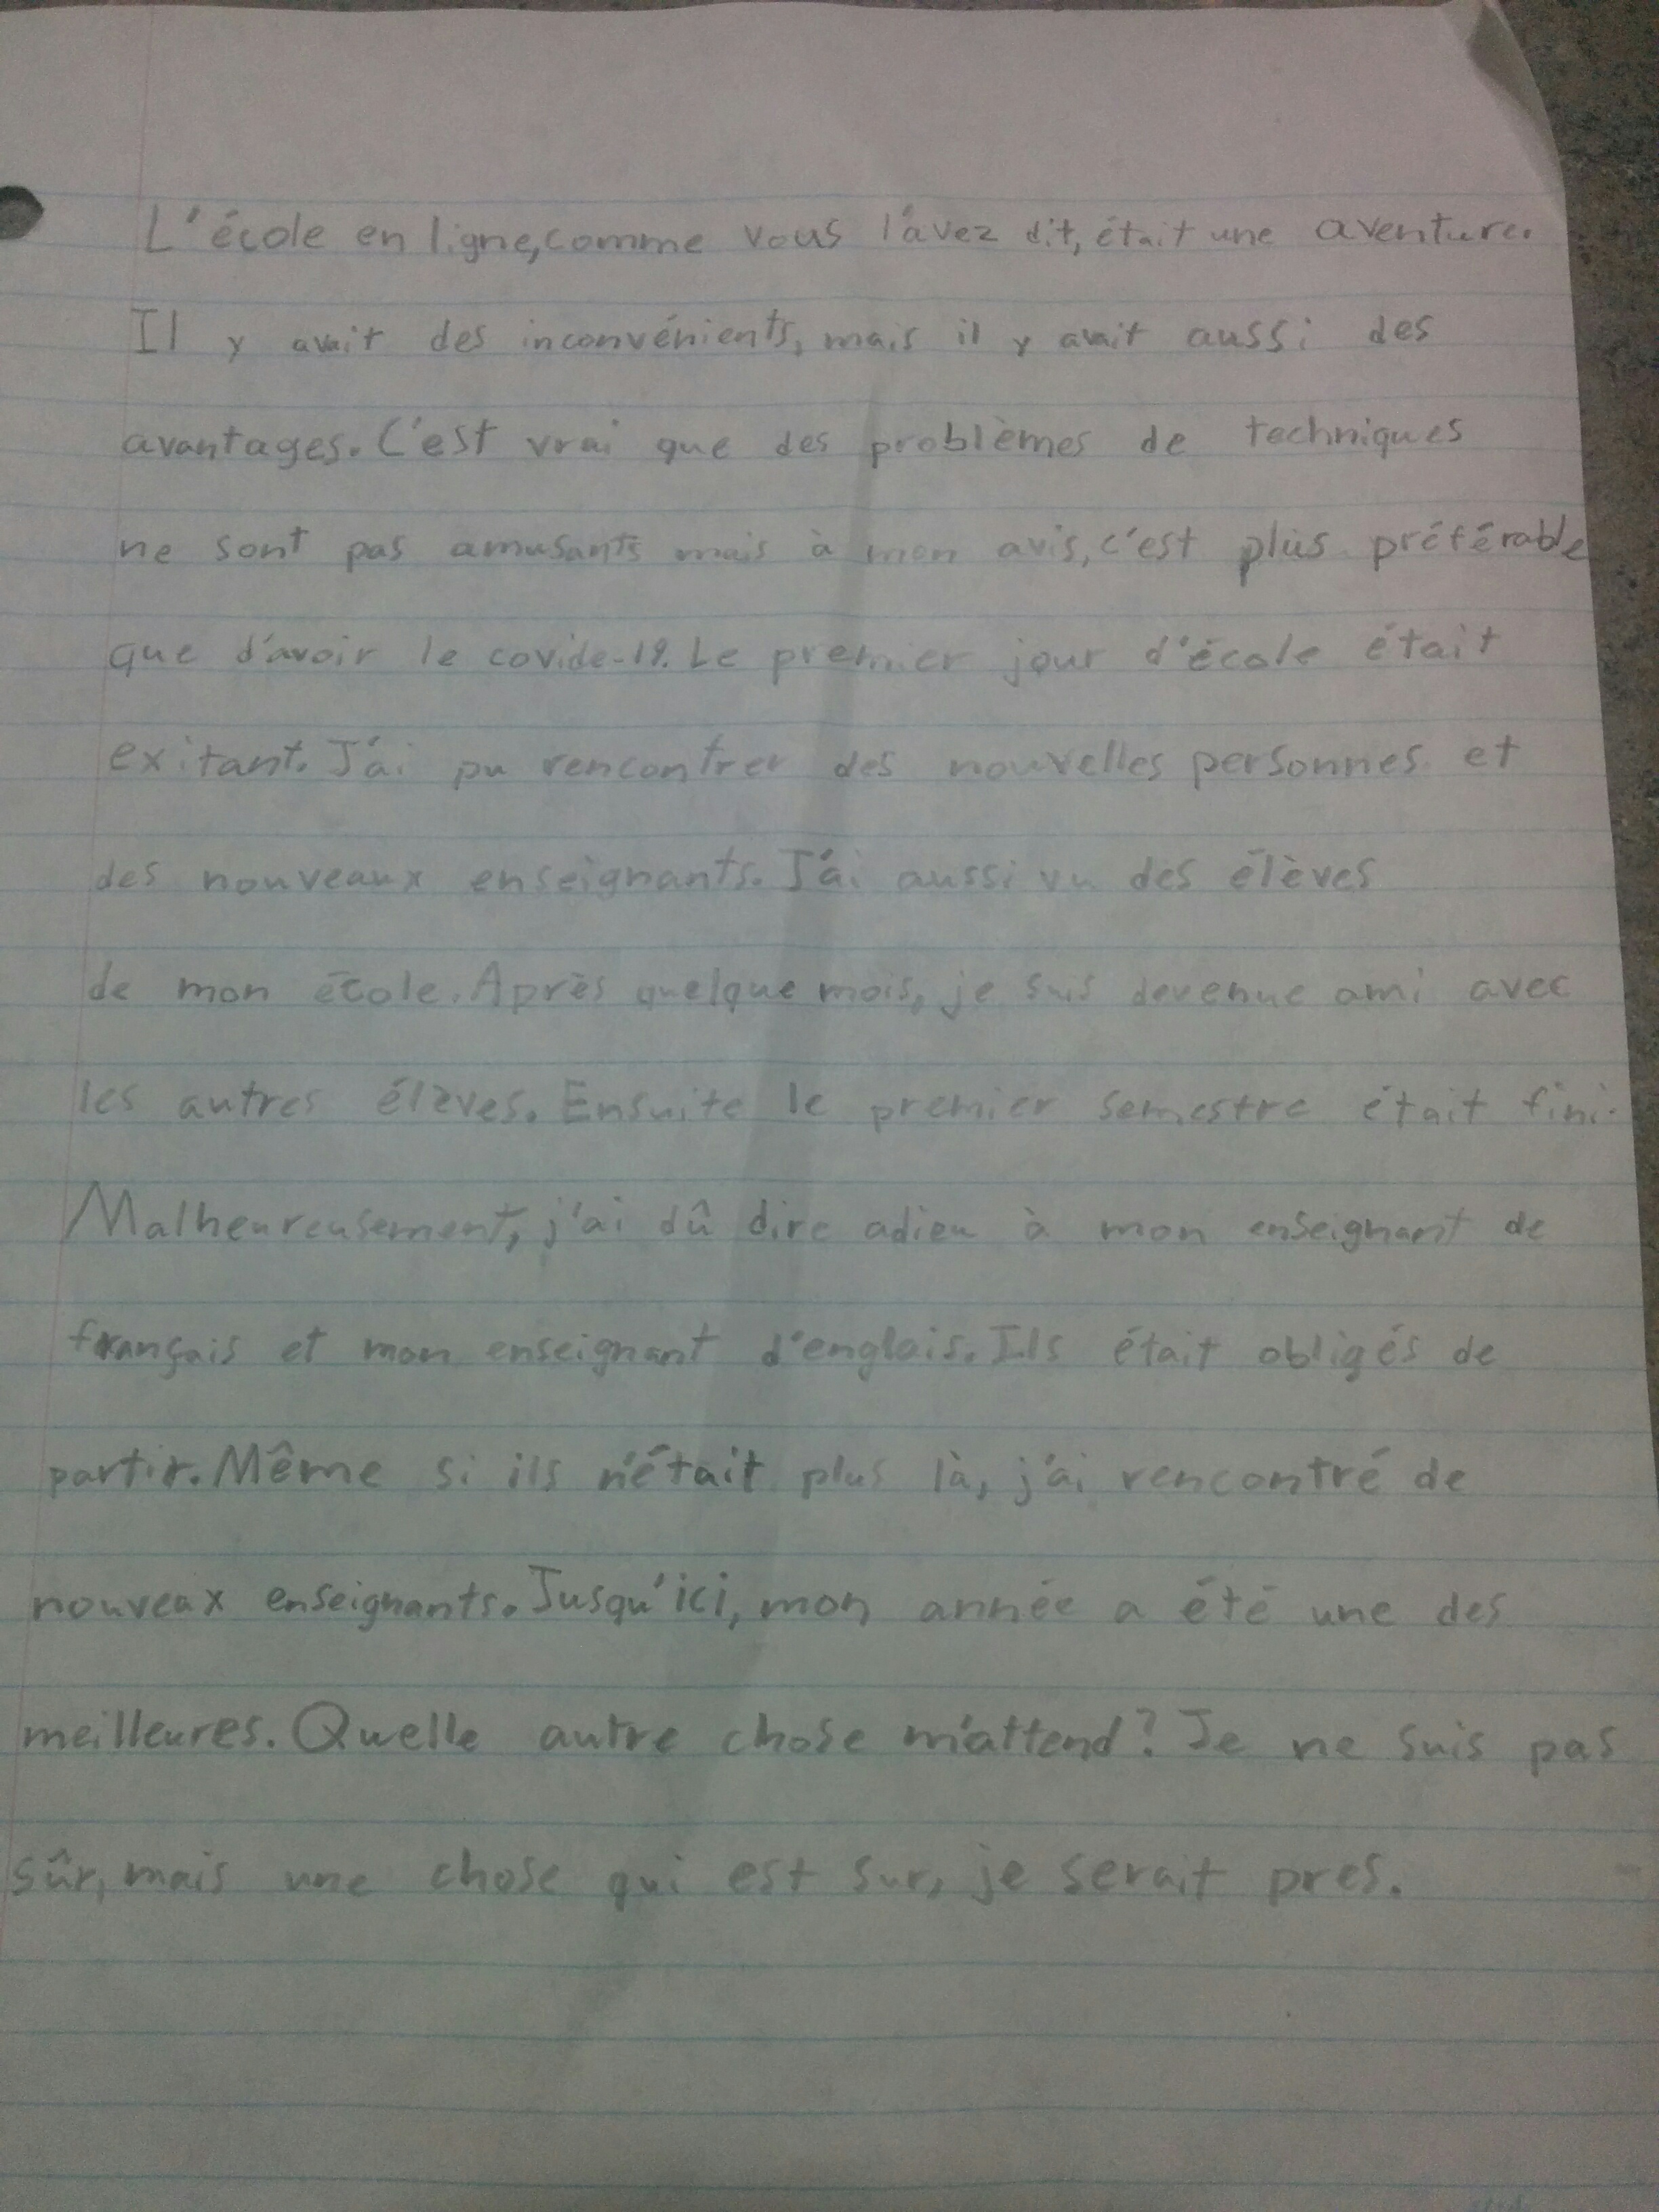 L'école en ligne, comme vous l'avez dit, était une aventure.
Il y avait des inconvénients, mais il y avait aussi des
avantages. C'est vrai que des problèmes de techniques
ne sont pas amusants mais à mon avis, c'est plus préférable
que d'avoir le covide-19. Le premier jour d'école était
exitant. J'ai pu rencontrer des nouvelles personnes et
des nouveaux enseignants. J'ai aussi vu des élèves
de mon école. Après quelque mois, je suis devenue ami avec
les autres élèves. Ensuite le premier semestre était fini.
Malheureusement, j'ai dû dire adieu à mon enseignant de
français et mon enseignant d'englais. Ils était obligés de
partir. Même si ils n'était plus là, j'ai rencontré de
nouveax enseignants. Jusqu'ici, mon année a été une des
meilleures. Quelle autre chose m'attend? Je ne suis pas
sûr, mais une chose qui est sur, je serait pres.